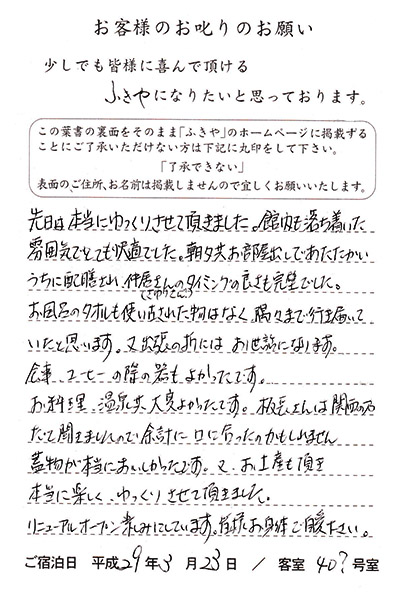 お客様のお叱りのお願い
少しでも皆様に喜んで頂ける
ふきやになりたいと思っております。
この葉書の裏面をそのまま「ふきや」のホームページに掲載する
ことにご了承いただけない方は下記に丸印をして下さい。
「了承できない」
表面のご住所、お名前は掲載しませんので宜しくお願いいたします。
先日は本当にゆっくりさせて頂きました。館内も落ち着いた
雰囲気でとても快適でした。朝夕共お部屋出しであたたかい
うちに配膳され、仲居さんのタイミングの良さも完璧でした。
(さゆりさん)
お風呂のタオルも使い古された物はなく、隅々まで行き届いて
いたと思います。又出張の折にはお世話になります。
食事、コーヒーの際の器もよかったです。
お料理、温泉共、大変よかったです。板長さんは関西の方
だと聞きましたので余計に口に合ったのかもしれません
蓋物が本当においしかったです。又、お土産も頂き
本当に楽しく、ゆっくりさせて頂きました。
リニューアルオープン楽しみにしています。皆様お身体ご自愛下さい。
ご宿泊日 平成29年3月23日 / 客室 40?号室